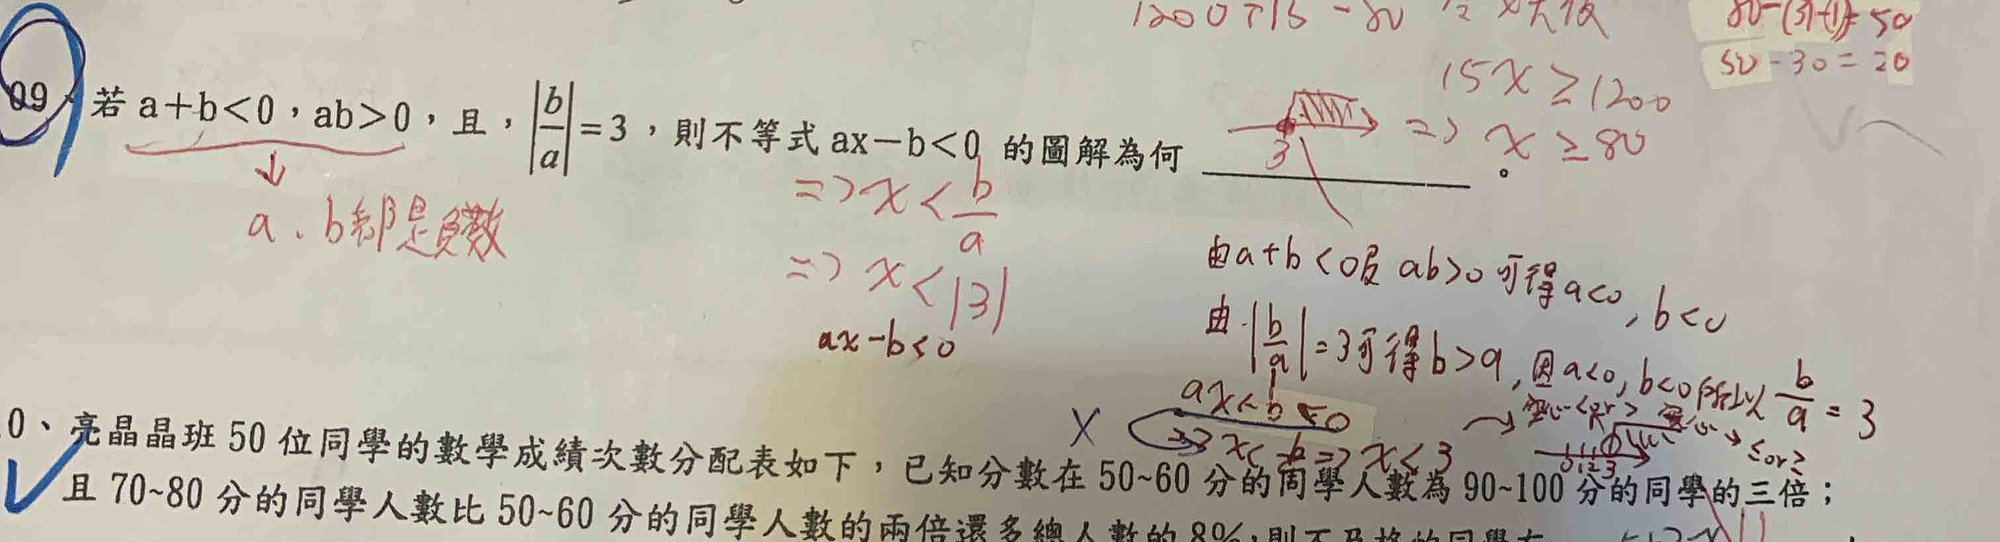 15x ≥ 1200
⇒ x ≥ 80
50-30=20
09、若 a+b<0，ab>0，且，|b/a|=3，則不等式 ax-b<0 的圖解為何 ＿＿＿＿。
3
a、b都是負數
⇒ x < b/a
⇒ x < |3|
ax-b<0
由a+b<0及 ab>0 可得a<0, b<0
由 |b/a|=3可得b>a, 因a<0, b<0所以 b/a = 3
x<3
0、亮晶晶班 50 位同學的數學成績次數分配表如下，已知分數在 50~60 分的同學人數為 90~100 分的同學的三倍；
且 70~80 分的同學人數比 50~60 分的同學人數的兩倍還多總人數的 8%，則不及格的同學有